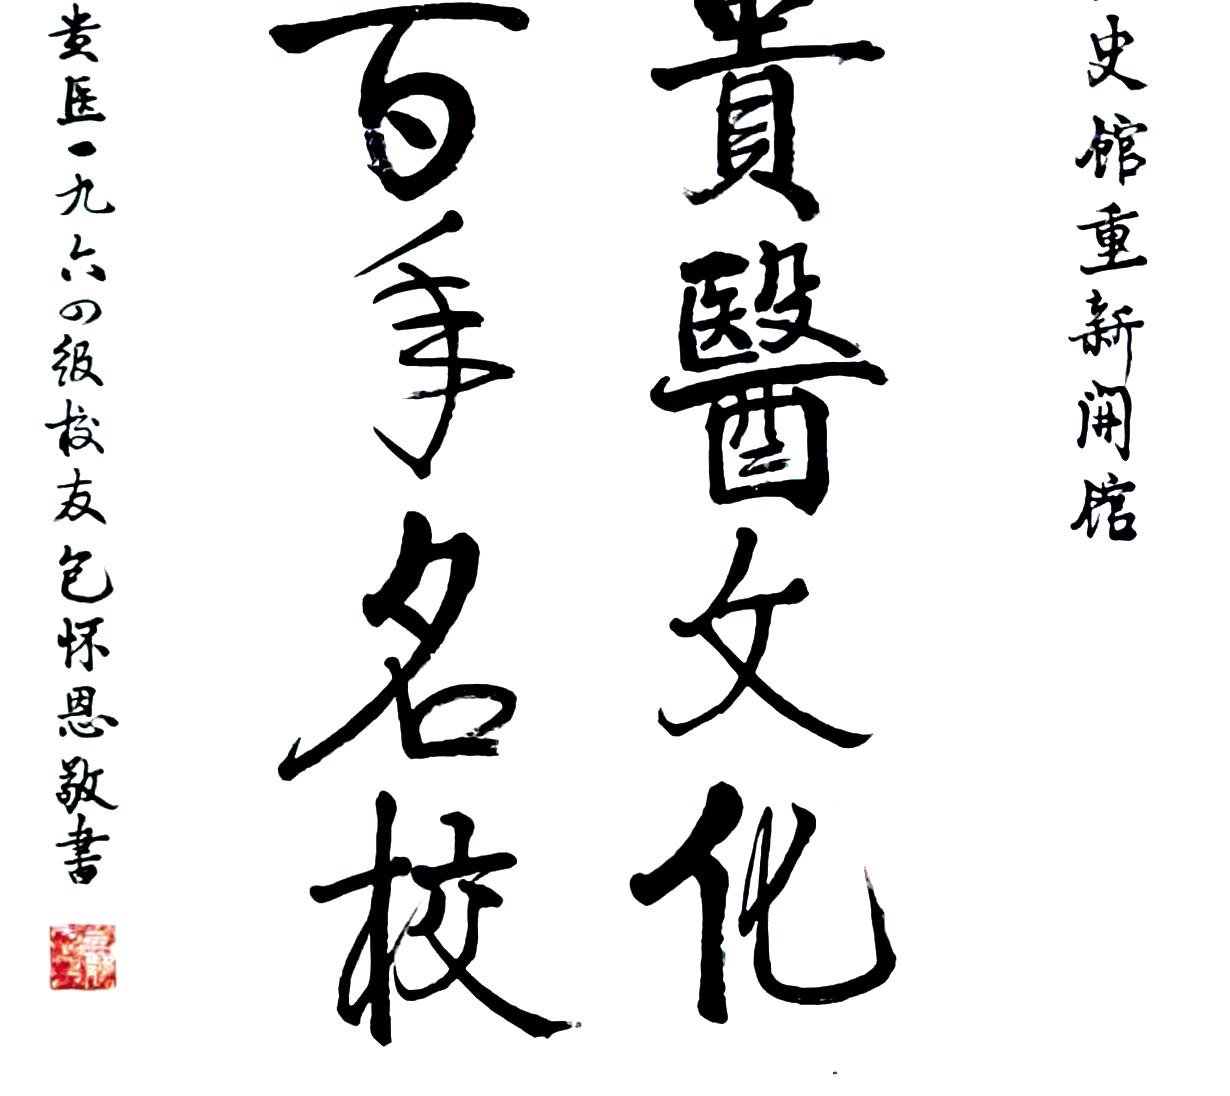 史馆重新開馆
貴醫文化
百年名校
贵医一九六四级校友包怀恩敬書